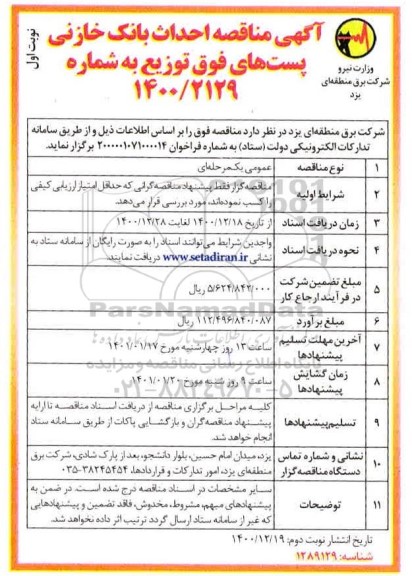 نوبت اول
آگهی مناقصه احداث بانک خازنی
پست‌های فوق توزیع به شماره
۱۴۰۰/۲۱۲۹
وزارت نیرو
شرکت برق منطقه‌ای
یزد
شرکت برق منطقه‌ای یزد در نظر دارد مناقصه فوق را بر اساس اطلاعات ذیل و از طریق سامانه
تدارکات الکترونیکی دولت (ستاد) به شماره فراخوان ۲۰۰۰۰۰۱۰۷۱۰۰۰۰۱۴ برگزار نماید.
۱ نوع مناقصه عمومی یک‌مرحله‌ای
۲ شرایط اولیه مناقصه‌گزار فقط پیشنهاد مناقصه‌گرانی که حداقل امتیاز ارزیابی کیفی
را کسب نموده‌اند، مورد بررسی قرار می‌دهد.
۳ زمان دریافت اسناد از تاریخ ۱۴۰۰/۱۲/۱۸ لغایت ۱۴۰۰/۱۲/۲۸
۴ نحوه دریافت اسناد واجدین شرایط می‌توانند اسناد را به صورت رایگان از سامانه ستاد به
نشانی www.setadiran.ir دریافت نمایند.
۵ مبلغ تضمین شرکت
در فرآیند ارجاع کار ۵/۶۲۴/۸۴۲/۰۰۰ ریال
۶ مبلغ برآورد ۱۱۲/۴۹۶/۸۴۰/۰۸۷ ریال
۷ آخرین مهلت تسلیم
پیشنهادها ساعت ۱۳ روز چهارشنبه مورخ ۱۴۰۱/۰۱/۱۷
۸ زمان گشایش
پیشنهادها ساعت ۹ روز شنبه مورخ ۱۴۰۱/۰۱/۲۰
۹ تسلیم پیشنهادها کلیه مراحل برگزاری مناقصه از دریافت اسناد مناقصه تا ارایه
پیشنهاد مناقصه‌گران و بازگشایی پاکات از طریق سامانه ستاد
انجام خواهد شد.
۱۰ نشانی و شماره تماس
دستگاه مناقصه‌گزار یزد، میدان امام حسین، بلوار دانشجو، بعد از پارک شادی، شرکت برق
منطقه‌ای یزد، امور تدارکات و قراردادها، ۳۸۲۴۵۴۵۴-۰۳۵
۱۱ توضیحات سایر مشخصات در اسناد مناقصه درج شده است. در ضمن به
پیشنهادهای مبهم، مشروط، مخدوش، فاقد تضمین و پیشنهادهایی
که غیر از سامانه ستاد ارسال گردد ترتیب اثر داده نخواهد شد.
تاریخ انتشار نوبت دوم: ۱۴۰۰/۱۲/۱۹
شناسه: ۱۲۸۹۱۲۹
ParsNamadData